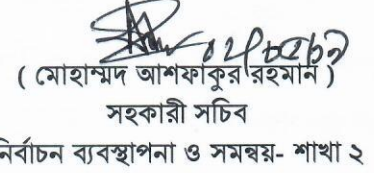 ( মোহাম্মদ আশফাকুর রহমান )
সহকারী সচিব
নির্বাচন ব্যবস্থাপনা ও সমন্বয়- শাখা ২